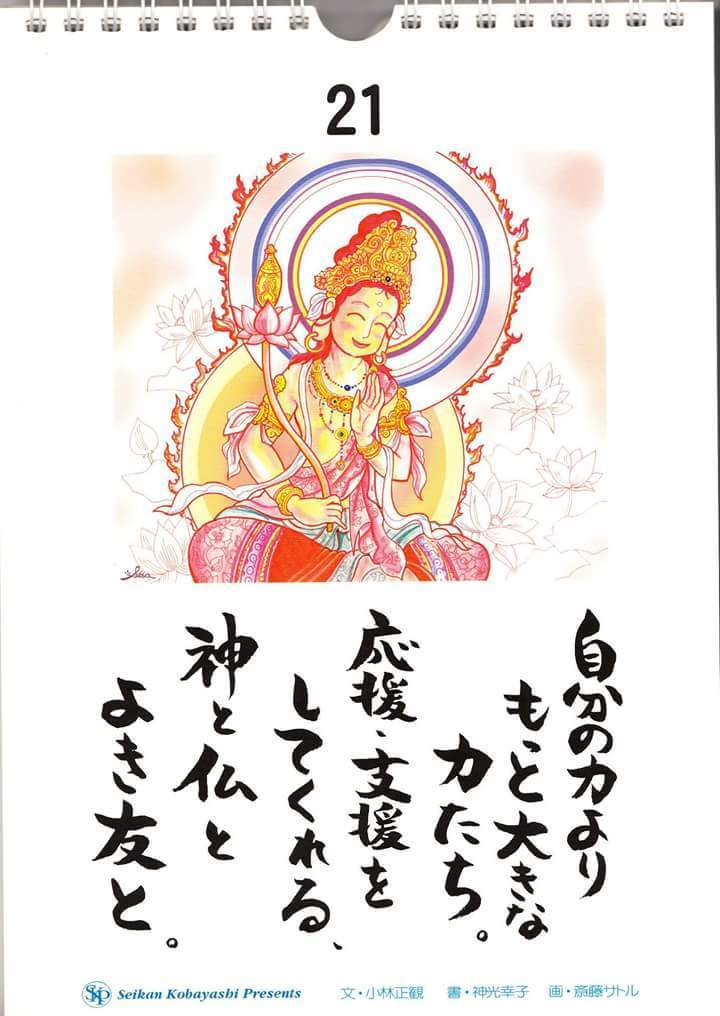 21
自分の力より
もっと大きな
力たち。
応援・支援を
してくれる、
神と仏と
よき友と。
SKP Seikan Kobayashi Presents 文・小林正観 書・神光幸子 画・斎藤サトル